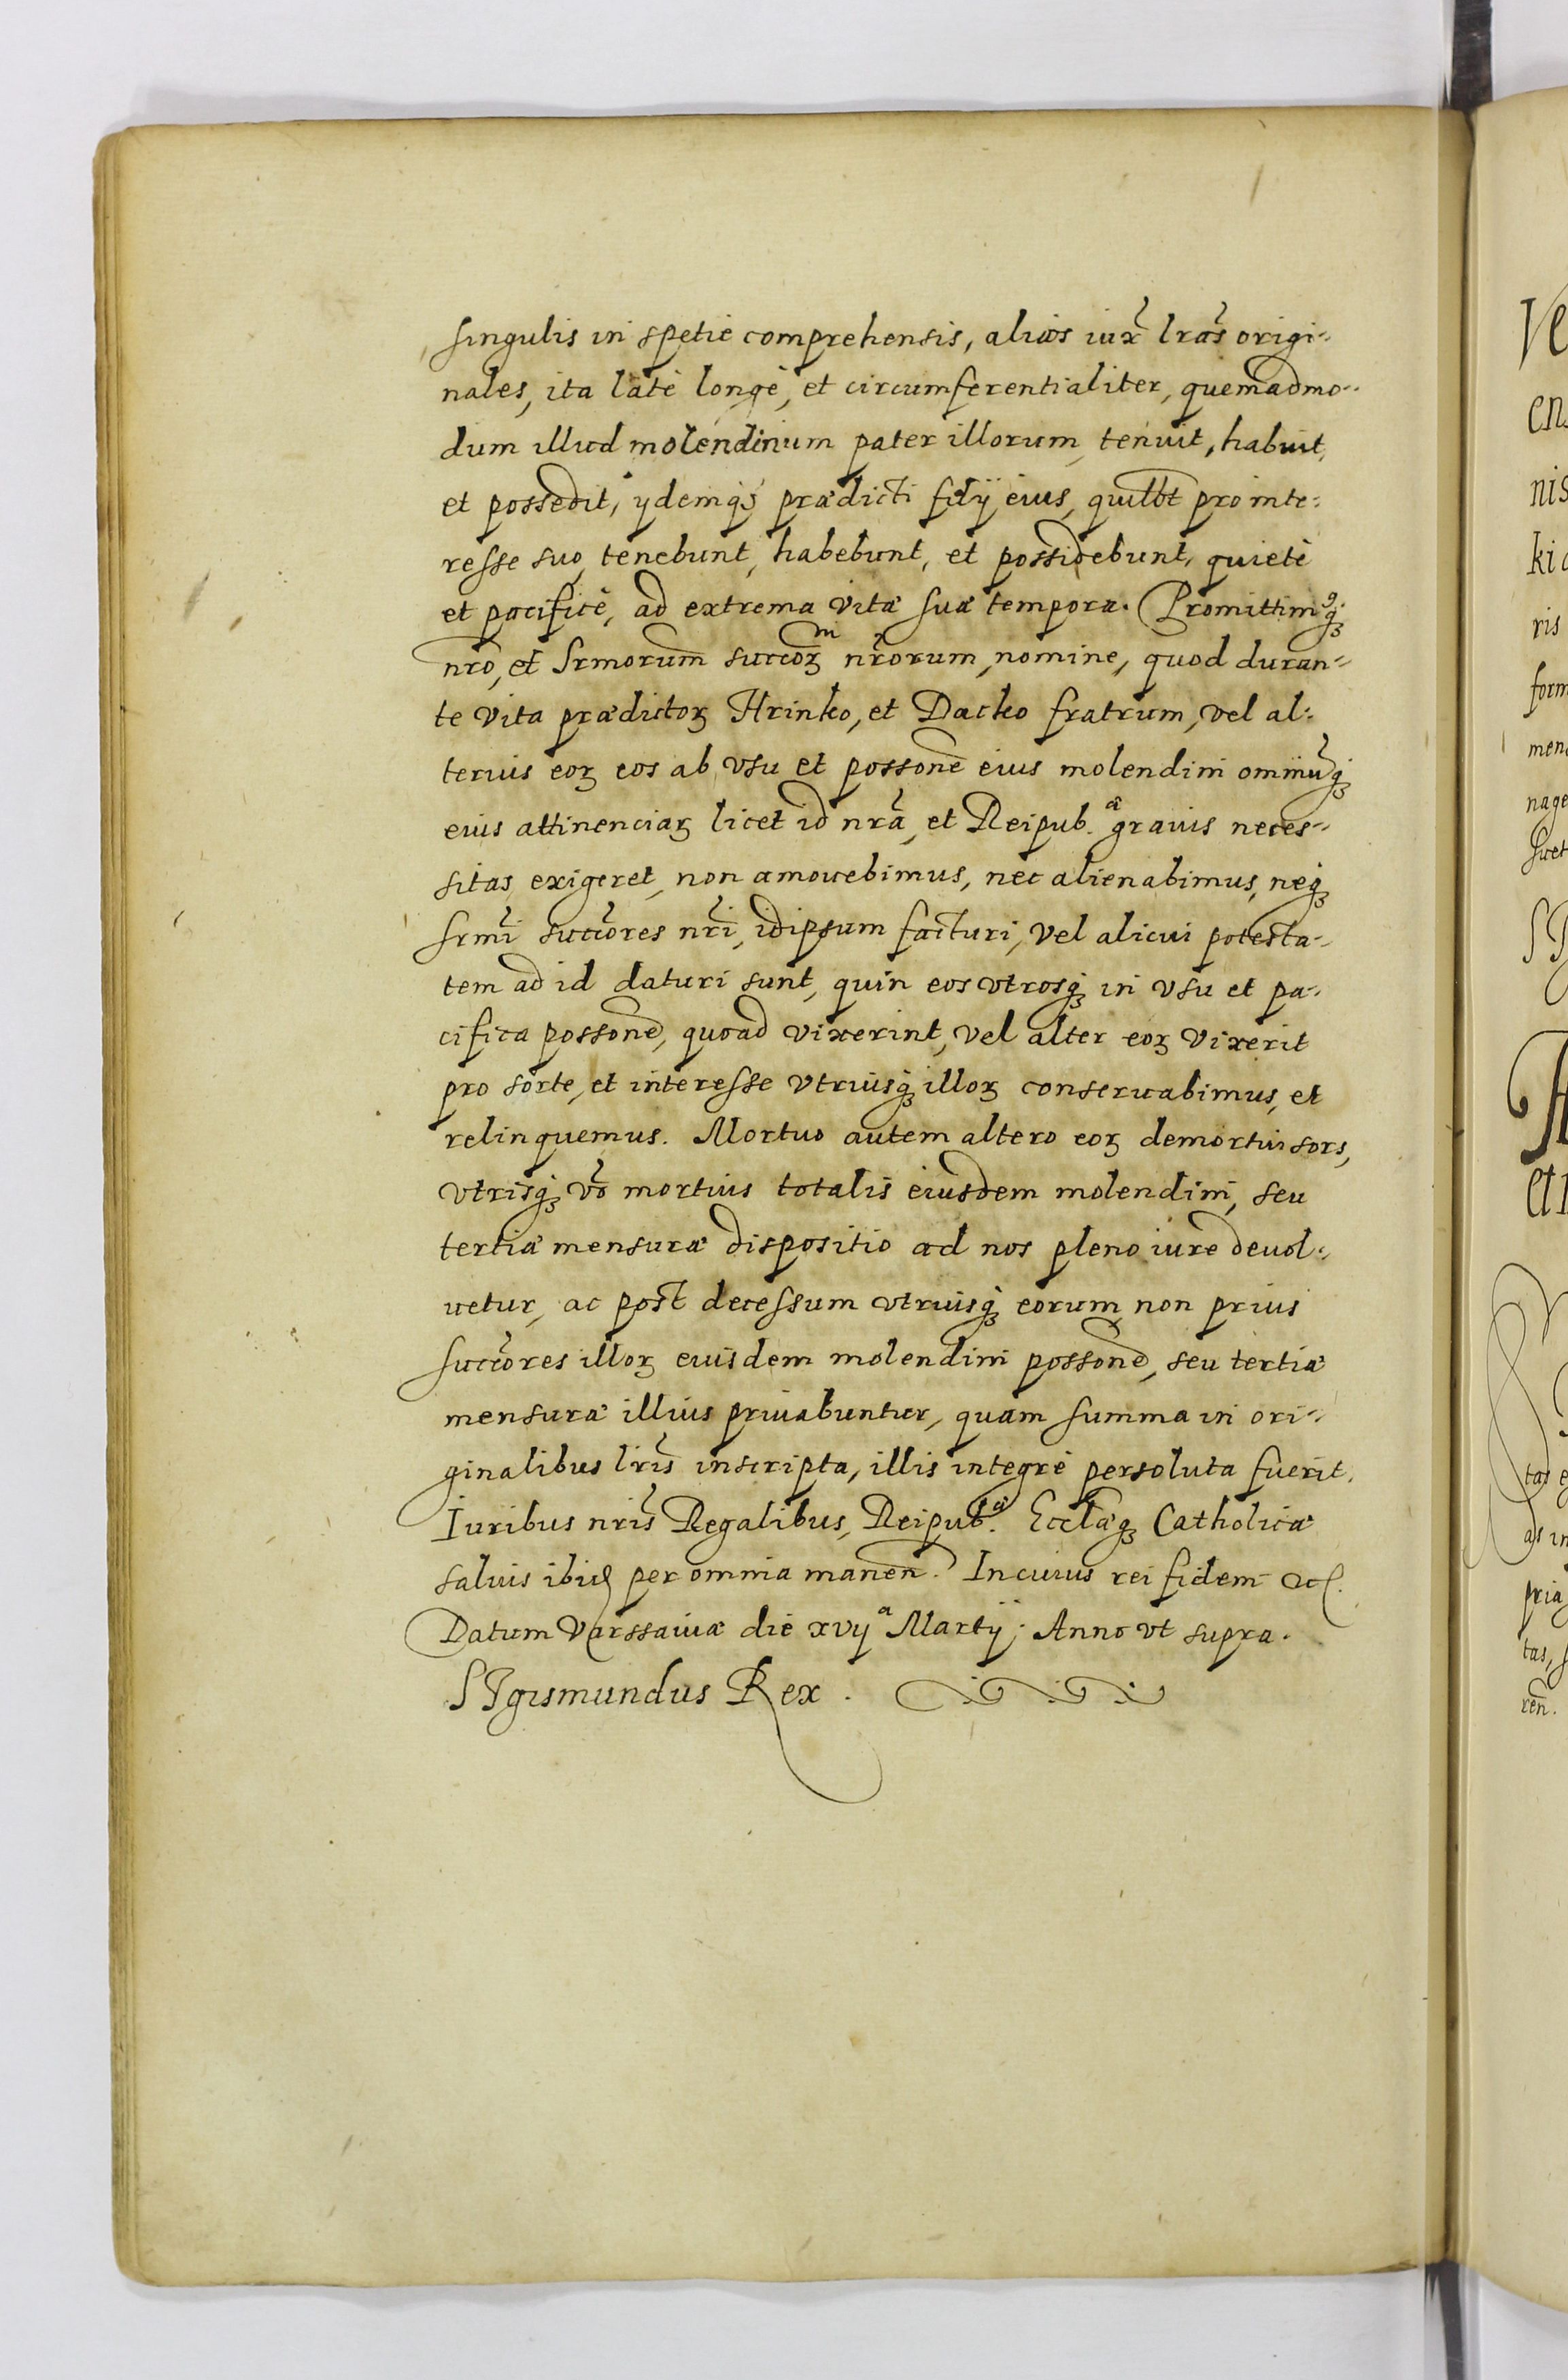 singulis in spetie comprehensis, alias iux̃ lr̃as origi-
nales, ita latè longè, et circumferentialiter, quemadmo-
dum illud molendinum pater illorum tenuit, habuit,
et possedit, ydemq́ꝫ prædicti filÿ eius, quilb̃t pro inte-
resse suo, tenebunt, habebunt, et possidebunt, quietè
et pacificè, ad extrema vitæ suæ tempora. Promittimꝰq́ꝫ
nr̃o, et Srmorum̃ succoꝝͫ nr̃orum, nomine, quod duran-
te vita prædictoꝝ Hrinko, et Dacko fratrum, vel al-
terius eoꝝ eos ab vsu et possonẽ eius molendini omniũq́ꝫ
eius attinenciaꝝ licet id nr̃a, et Reipub.ͣ grauis neces-
sitas exigeret, non amouebimus, nec alienabimus, neqꝫ
Srmĩ succõres nr̃i, idipsum facturi, vel alicui potesta-
tem ad id daturi sunt, quin eos vtrosq́ꝫ in vsu et pa-
cifica possonẽ, quoad vixerint, vel alter eoꝝ vixerit
pro sorte, et interesse vtriusq́ꝫ illoꝝ conseruabimus, et
relinquemus. Mortuo autem altero eoꝝ demortui sors,
vtrisq́ꝫ võ mortuis totalis eiusdem molendini, seu
tertiæ mensuræ dispositio ad nos pleno iure deuol-
uetur, ac post decessum vtriusq́ꝫ eorum, non prius
succõres illoꝝ eiusdem molendini possonẽ, seu tertiæ
mensuræ illius priuabuntur, quam summa in ori-
ginalibus lr̃is inscripta, illis integrè persoluta fuerit.
Iuribus nr̃is Regalibus, Reipub.ͣ Eccl̃æqꝫ Catholicæ
saluis ibid per omnia manen̄. In cuius rei fidem &c.
Datum Varssauiæ die xvijͣ Martij. Anno vt supra.
SIgismundus Rex.